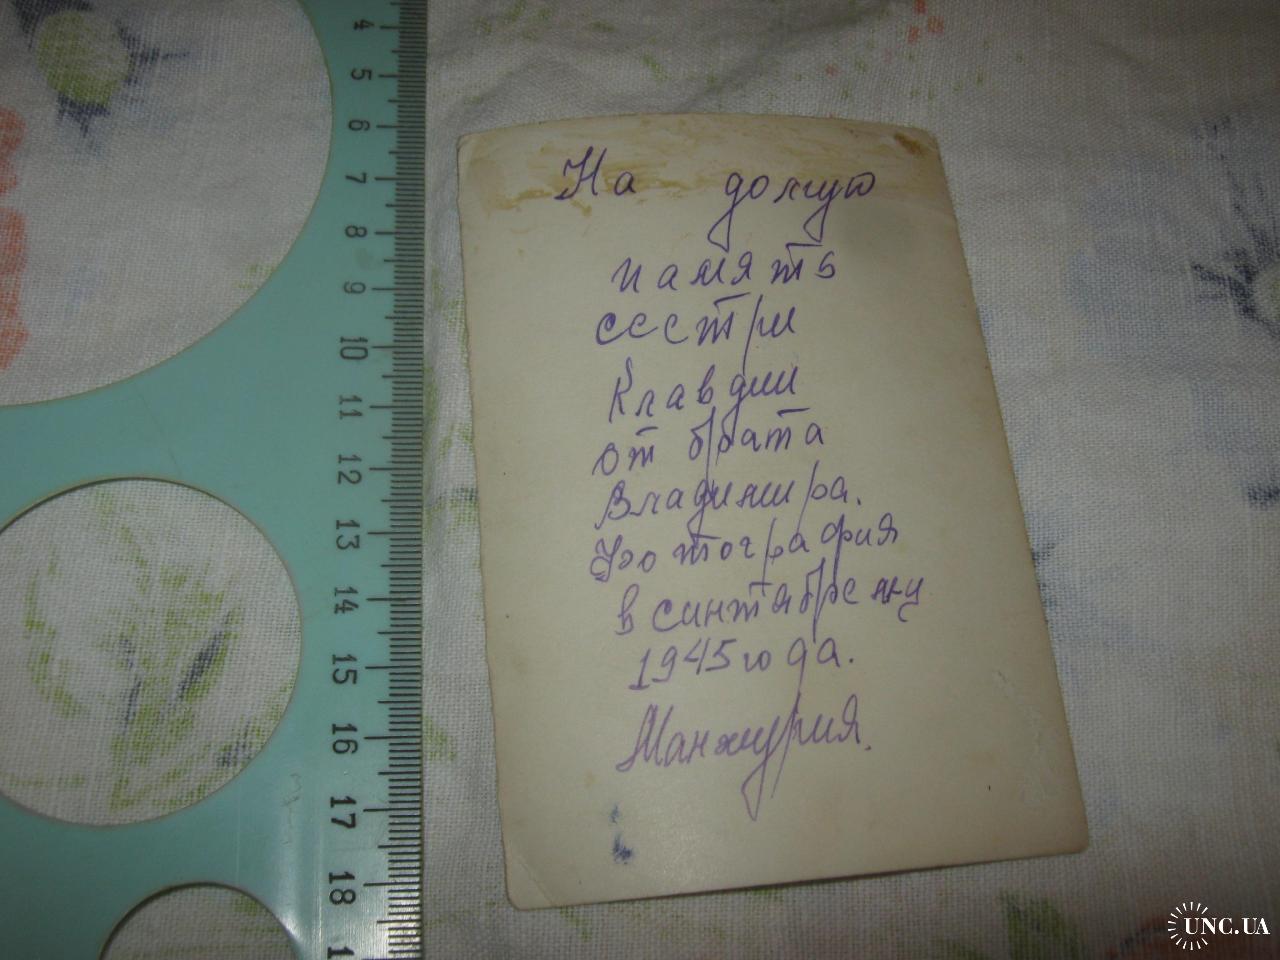 4
5
6
7
8
9
10
11
12
13
14
15
16
17
18
1
На долгую
память
сестри
Клавдии
от брата
Владимира.
Фотография
в синтябре
1945 года.
Манжурия.
UNC.UA